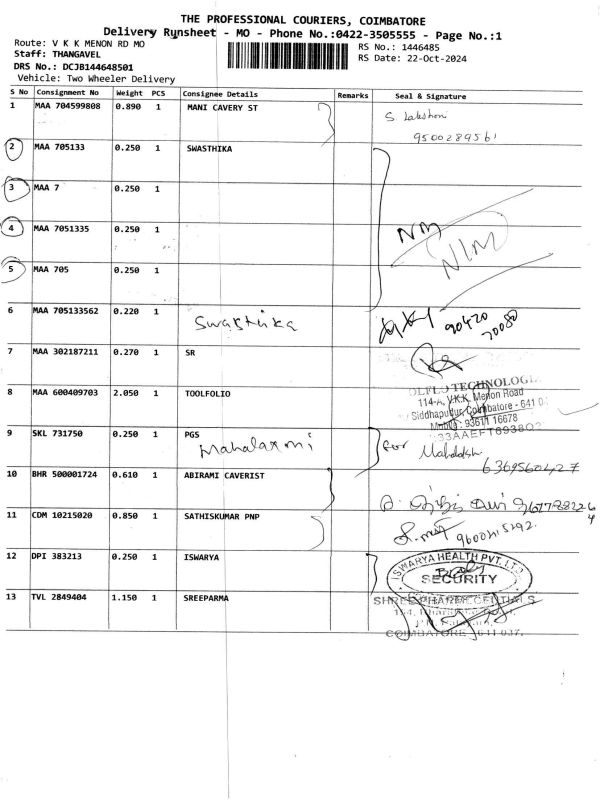 THE PROFESSIONAL COURIERS, COIMBATORE
Delivery Runsheet - MO - Phone No.:0422-3505555 - Page No.:1
Route: V K K MENON RD MO
RS No.: 1446485
Staff: THANGAVEL
RS Date: 22-Oct-2024
DRS No.: DCJB1446648501
Vehicle: Two Wheeler Delivery
S No Consignment No Weight PCS Consignee Details Remarks Seal & Signature
1 MAA 704599808 0.890 1 MANI CAVERY ST
S Lakshan
9500289561
2 MAA 705133 0.250 1 SWASTHIKA
3 MAA 7 0.250 1
4 MAA 7051335 0.250 1 NM
NIM
5 MAA 705 0.250 1
6 MAA 705133562 0.220 1 Swasthika 90420
70080
7 MAA 302187211 0.270 1 SR
8 MAA 600409703 2.050 1 TOOLFOLIO
TECHNOLOG
114-A, V.K.K. Menon Road
Siddhapudur, Coimbatore - 641 0
Mobile : 93611 16678
33AAEFT6938Q
9 SKL 731750 0.250 1 PGS
Mahalaxmi
for
6369560427
10 BHR 500001724 0.610 1 ABIRAMI CAVERIST
11 CDM 10215020 0.850 1 SATHISKUMAR PNP
9600215292
12 DPI 383213 0.250 1 ISWARYA
ISWARYA HEALTH PVT. LTD
SECURITY
13 TVL 2849404 1.150 1 SREEPARMA
COIMBATORE 641 037.